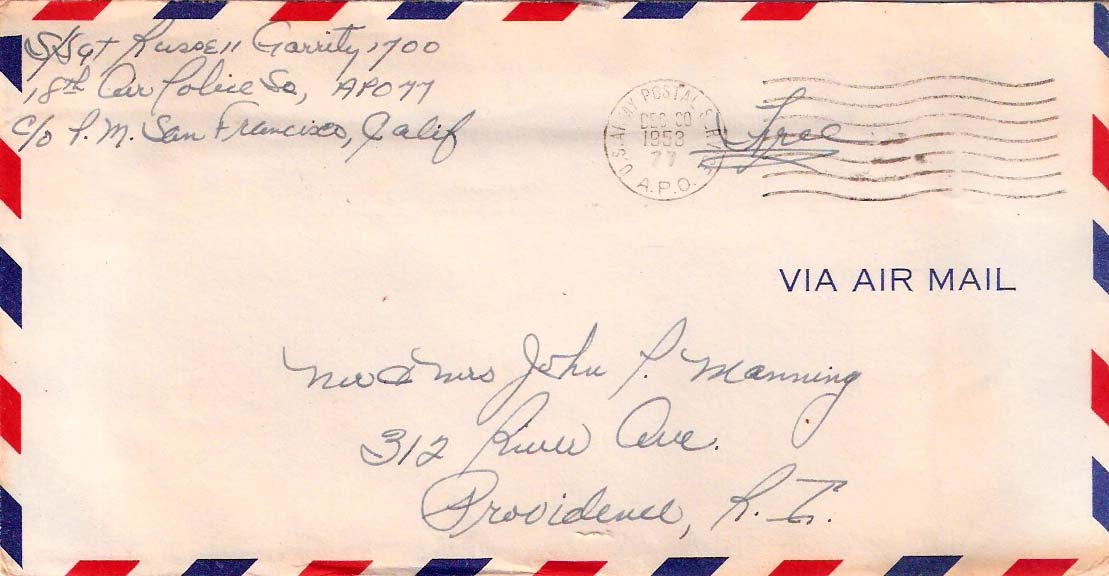 S/Sgt Russell Garrity 1700
18th Air Police Sq, APO 77
c/o P. M. San Francisco, Calif
U.S. ARMY POSTAL SERVICE
DEC 30
1953
77
A.P.O.
Free
VIA AIR MAIL
Mr & Mrs John P. Manning
312 River Ave.
Providence, R. I.